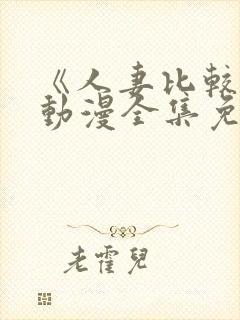 《人妻比較
動漫全集免
老霍兒